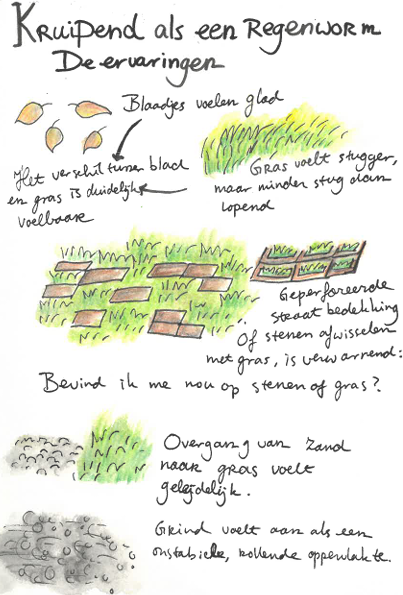 Kruipend als een Regenworm
De ervaringen
Blaadjes voelen glad
Het verschil tussen blad
en gras is duidelijk
voelbaar
Gras voelt stugger,
maar minder stug dan
lopend
Geperforeerde
straat bedekking
Of stenen afwisselen
met gras, is verwarrend:
Bevind ik me nou op stenen of gras?
Overgang van zand
naar gras voelt
geleidelijk.
Grind voelt aan als een
onstabiele, rollende oppervlakte.